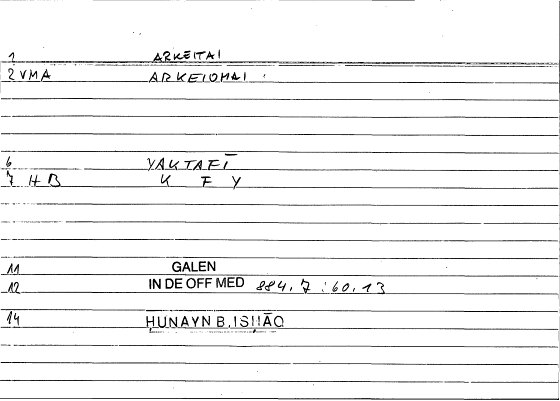 1 ARKEITAI
2 VMA ARKEIOMAI
6 YAKTAFĪ
7 H B K F Y
11 GALEN
12 IN DE OFF MED 884, 7 : 60, 13
14 ḤUNAYN B. ISḤĀQ